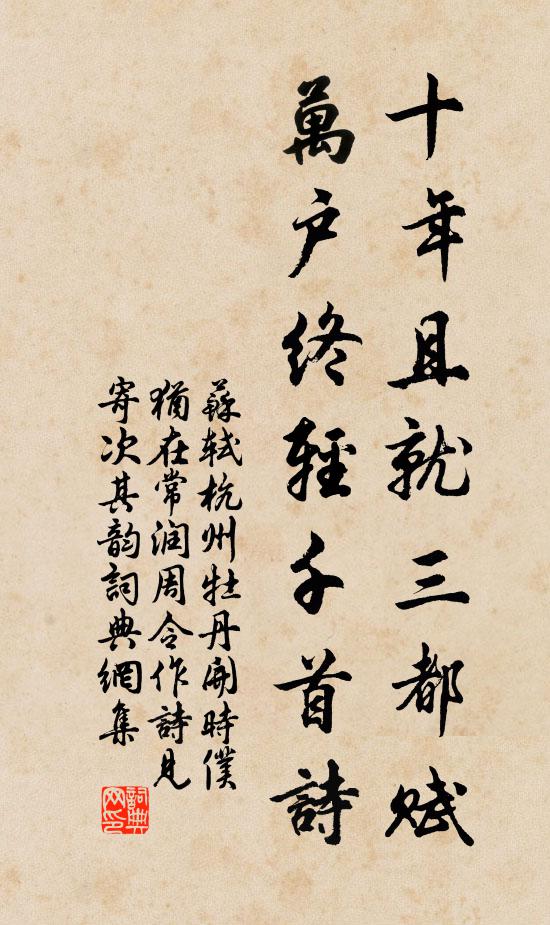 十年且就三都賦
萬户終輕千首詩
蘇軾杭州牡丹開時僕
猶在常润周令作詩見
寄次其韵詞典網集
詞典网印